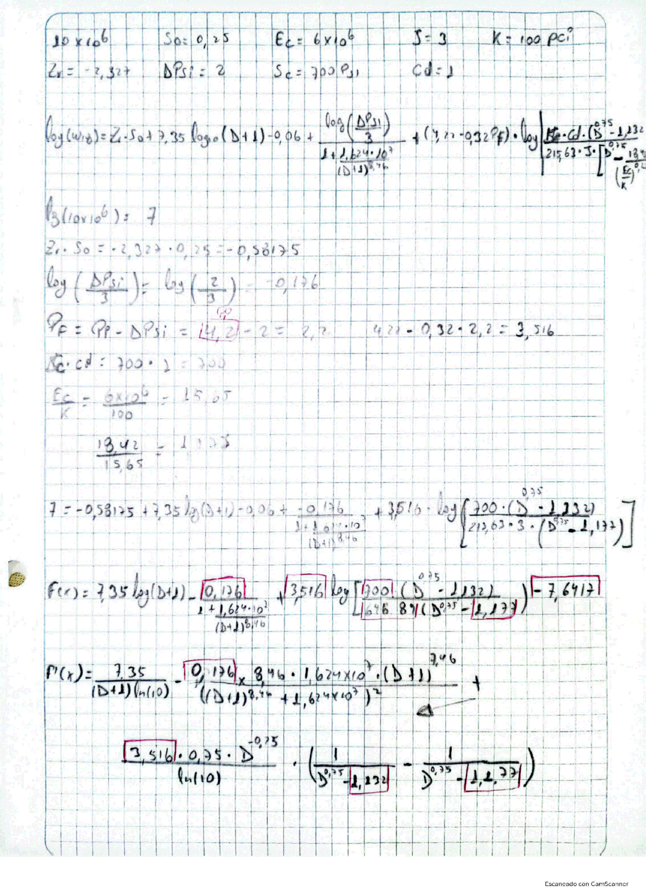 10x10⁶ So = 0,25 Ec = 6x10⁶ J = 3 K = 100 pci
Zr = -2,327 ΔPsi = 2 Sc = 700 Psi Cd = 1
log(W18) = Zr·So + 7,35 log10(D+1) - 0,06 + log(ΔPsi/3) / (1 + 1,624·10⁷/(D+1)^8,46) + (4,22 - 0,32Pf) · log[Sc·Cd·(D^0,75 - 1,132) / 215,63·J·[D^0,75 - 18,42/(Ec/K)^0,25
log(10x10⁶) = 7
Zr·So = -2,327·0,25 = -0,58175
log(ΔPsi/3) = log(2/3) = -0,176
Pf = Pi - ΔPsi = 4,2 - 2 = 2,2 4,22 - 0,32·2,2 = 3,516
Sc·Cd = 700·1 = 700
Ec/K = 6x10⁶/100 = 15,65
18,42/15,65 = 1,177
7 = -0,58175 + 7,35 log(D+1) - 0,06 + -0,176 / (1 + 1,624·10⁷/(D+1)^8,46) + 3,516 · log[700·(D^0,75 - 1,132) / 215,63·3·(D^0,75 - 1,177)]
F(x) = 7,35 log(D+1) - 0,176 / (1 + 1,624·10⁷/(D+1)^8,46) + 3,516 log[700 (D^0,75 - 1,132) / 646 89 (D^0,75 - 1,177)] - 7,6417
F'(x) = 7,35 / (D+1) ln(10) - 0,176 x 8,46 · 1,624x10⁷ · (D+1)^7,46 / ((D+1)^8,46 + 1,624x10⁷)² +
3,516 · 0,75 · D^-0,25 / ln(10) · (1 / D^0,75 - 1,132 - 1 / D^0,75 - 1,1,77)
Escaneado con CamScanner